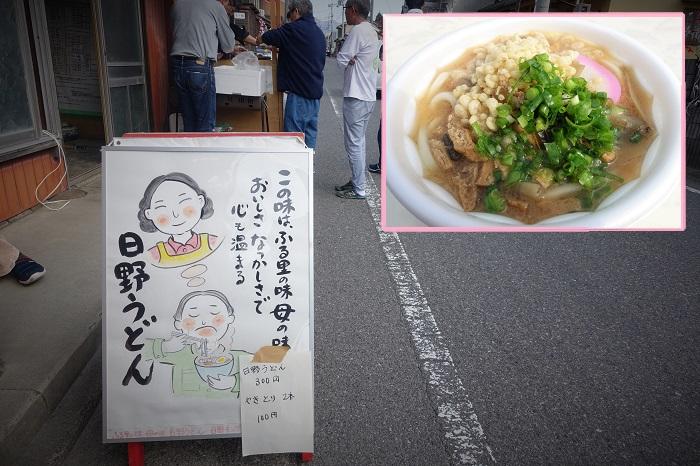 この味は、ふる里の味 母の味
おいしさ なつかしさで
心も温まる
日野うどん
日野うどん
300円
やきとり 2本
100円